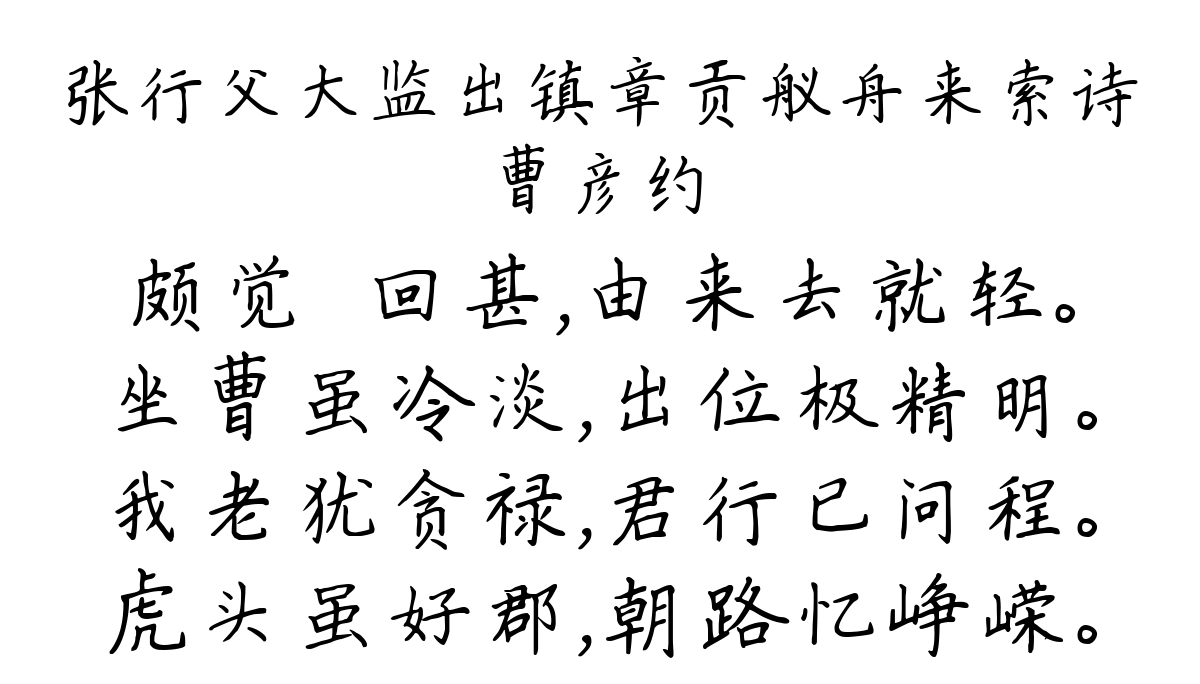 张行父大监出镇章贡舣舟来索诗
曹彦约
颇觉 回甚,由来去就轻。
坐曹虽冷淡,出位极精明。
我老犹贪禄,君行已问程。
虎头虽好郡,朝路忆峥嵘。